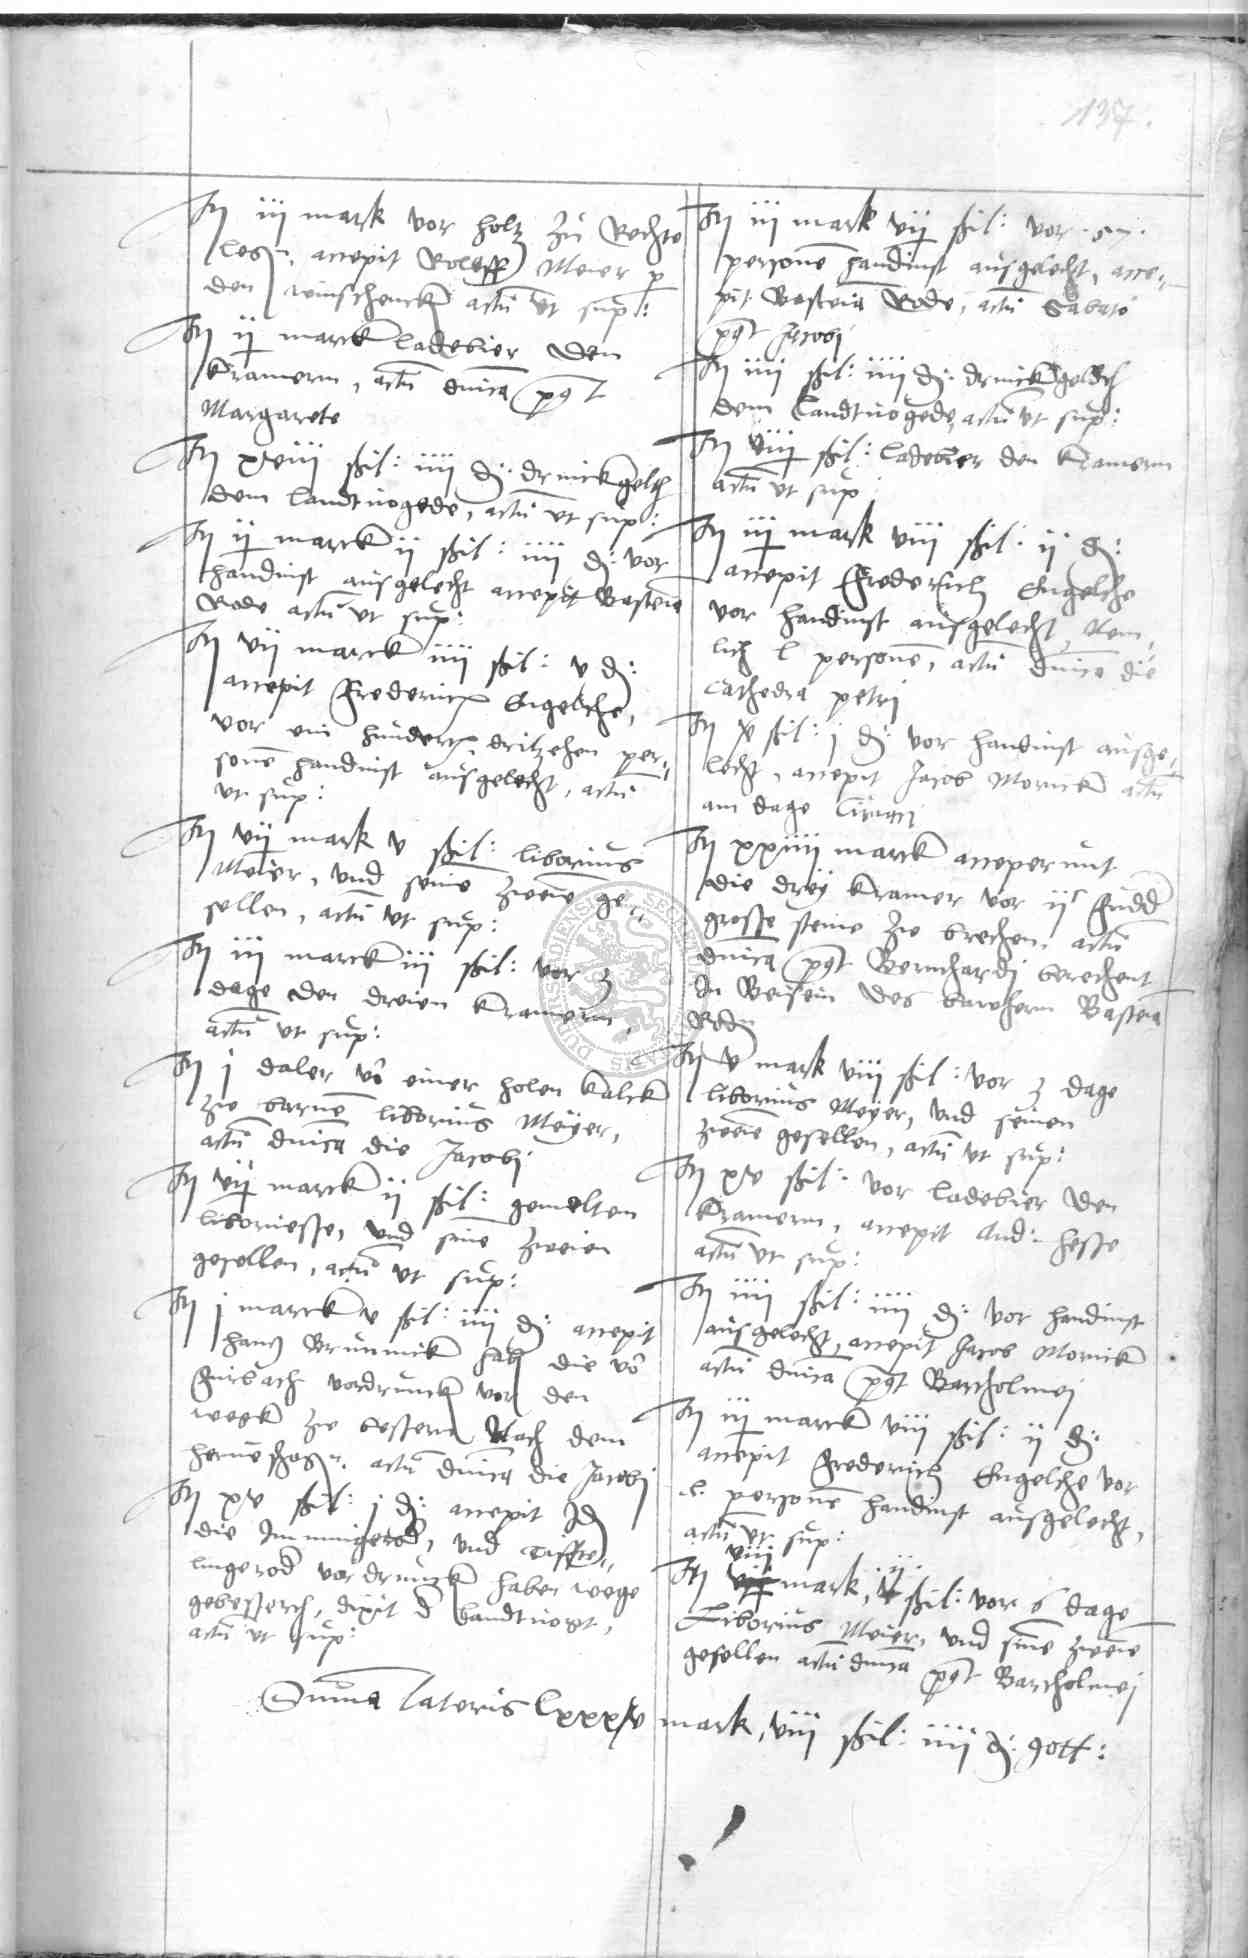 137.
It iij mark vor holtz zu Rechte
les, accepit Roleff Meier p
den winschencken actu ut sup:
It ij marck ladebier den
Kramern, actu dnica post
Margarete
It xviij ßil: iiij d: drinckgelt
dem landtvogede, actu ut sup:
It ij marck ij ßil: iiij d: vor
handinst ausgelecht accepit Bastein
Rode actu ut sup:
It vij marck iiij ßil: v d:
accepit Frederich Engelche,
vor ein hundert dritzehen per„
sone handinst ausgelecht, actu
ut sup:
It vij mark v ßil: liborius
Meier, und seine zweie ge„
sellen, actu ut sup:
It iij marck iij ßil: vor 3
dage den dreien Kramern,
actu ut sup:
It j daler vo einer holen kalck
zu barne liborius Meyer,
actu dnica die Jacobi
It vij marck ij ßil: gemelten
liboriesse, und sine zweien
gesellen, actu ut sup:
It j marck v ßil: iiij d: accepit
hans Brunnick hab die vo
Furbach vordruncken vor den
weck zu bessern Nach dem
actu dnica die Jacobi
It xv ßil: j d: accepit Id
die Immingerod, und Tifften„
lingerod vordruncken haben wege
gebessert, dixit d landtvogt,
actu ut sup:
It iij mark vij ßil: vor 57.
persone handinst ausgelecht, acce„
pit Bastein Rode, actu Sabato
post Jacobi
It iiij ßil: iiij d: drinckgeldt
dem landtvogede, actu ut sup:
It viij ßil: ladebier den Kramern
actu ut sup:
It iij mark viij ßil: ij d:
accepit Frederich Engelche
vor handinst ausgelecht, Nem„
lich l persone, actu dnica die
Cathedra petri
It x ßil: j d: vor handinst ausge„
lecht, accepit Jacob Mornick actu
am dage Ciriaci
It xxiiij marck acceperunt
die drey Kramer vor ij Fudd
grosse steine zu brechen, actu
dnica post Bernhardj berechent
In Beisein des bawhern Bastein
Roden
It v mark viij ßil: vor 3 dage
liborius Meyer, und seinen
zweie gesellen, actu ut sup:
It xv ßil: vor ladebier den
Kramern, accepit And: hesse
actu ut sup:
It iiij ßil: iiij d: vor handinst
ausgelecht, accepit Jacob Mornick
actu dnica post Bartholmej
It iij marck viij ßil: ij d:
accepit Frederich Engelche vor
l. persone handinst ausgelecht,
actu ut sup:
It viij mark, ij ßil: vor 6 dage
Liborius Meier, und sine zweie
gesellen actu dnica post Bartholmej
Suma lateris lxxxv mark, viij ßil: iiij d: gott: